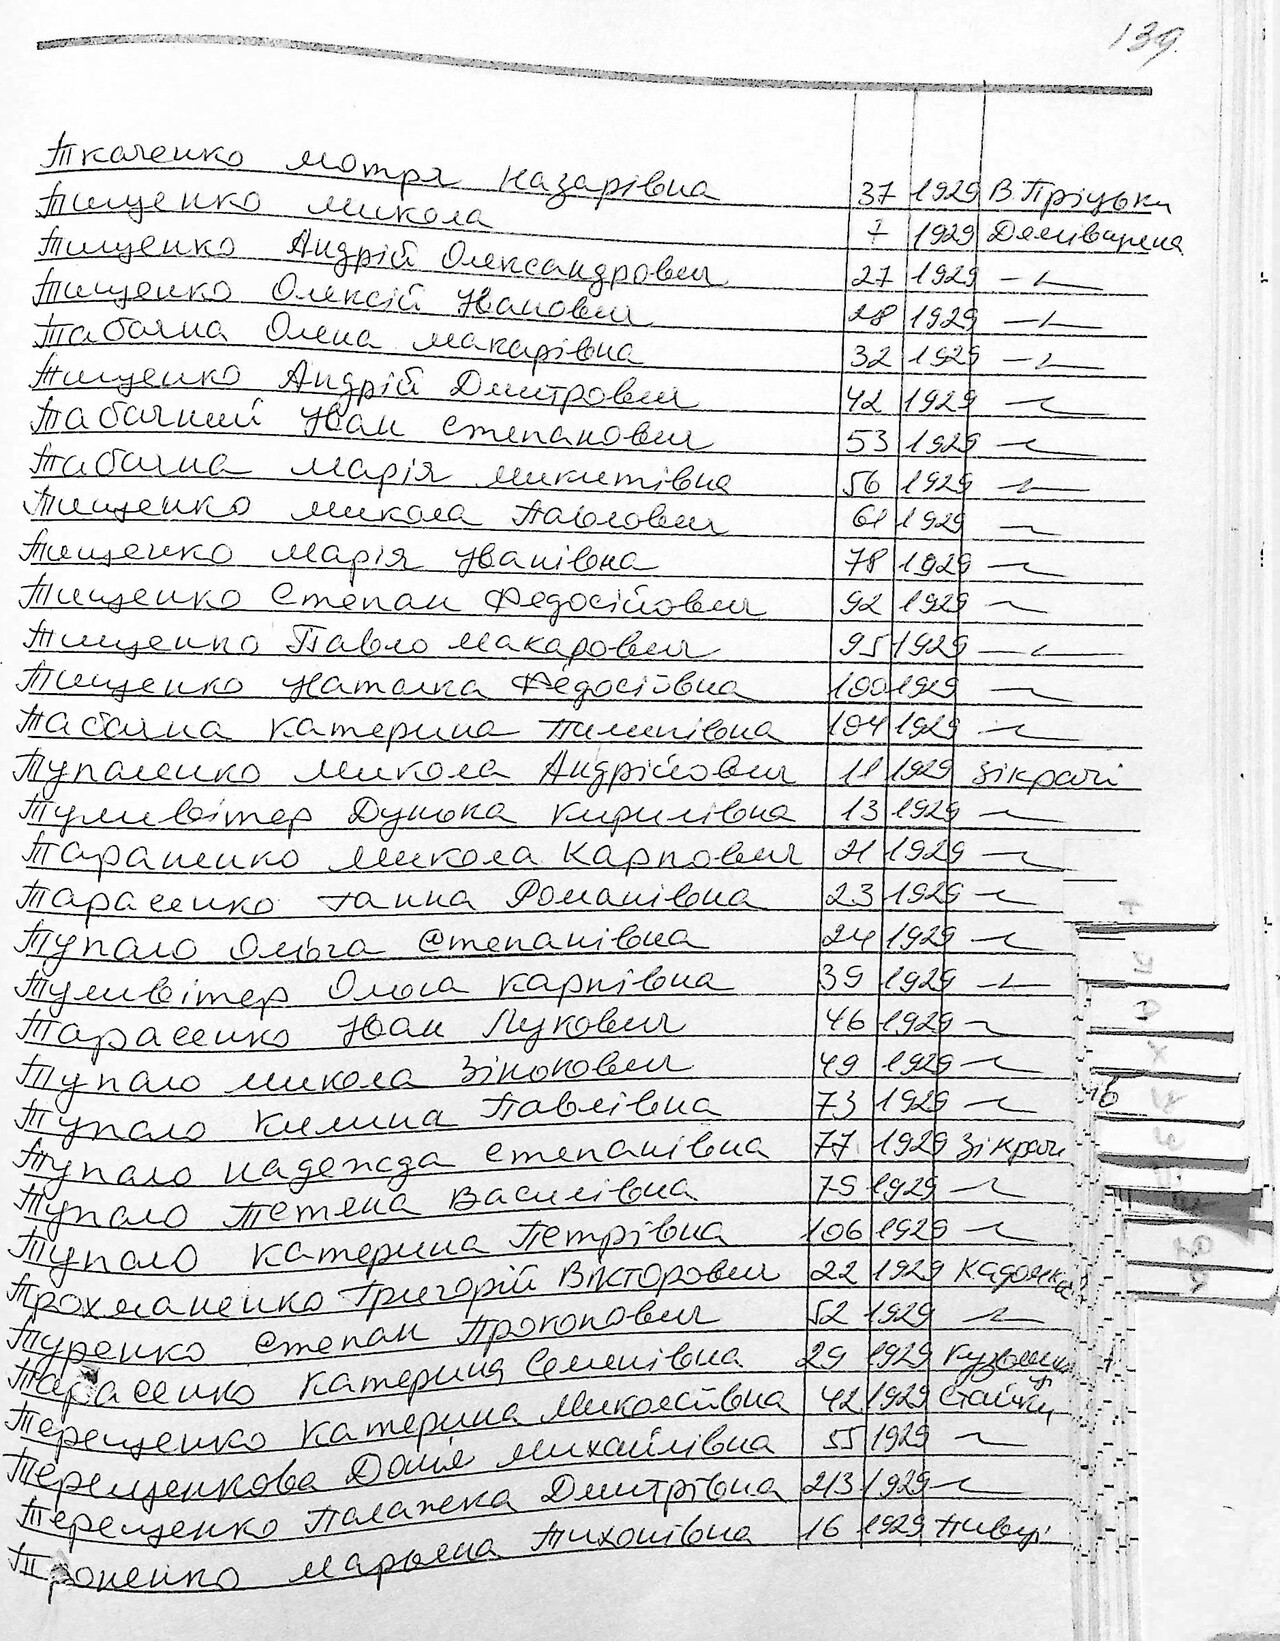 139.
Ткаченко Мотря Назарівна 37 1929 В. Пріцьки
Тищенко Микола 7 1929
Тищенко Андрій Олександрович 27 1929 —〃—
Тищенко Олексій Іванович 28 1929 —〃—
Табачна Олена Макарівна 32 1929 —〃—
Тищенко Андрій Дмитрович 42 1929 —〃—
Табачний Іван Степанович 53 1929 —〃—
Табачна Марія Микитівна 56 1929 —〃—
Тищенко Микола Павлович 61 1929 —〃—
Тищенко Марія Іванівна 78 1929 —〃—
Тищенко Степан Федосійович 92 1929 —〃—
Тищенко Павло Макарович 95 1929 —〃—
Тищенко Наталка Федосіївна 100 1929 —〃—
Табачна Катерина Пилипівна 104 1929 —〃—
Тупаленко Микола Андрійович 11 1929 Зікрачі
Тумивітер Дунька Кирилівна 13 1929 —〃—
Тараненко Микола Карпович 21 1929 —〃—
Тарасенко Ганна Романівна 23 1929 —〃—
Тупало Ольга Степанівна 24 1929 —〃—
Тумивітер Ольга Карпівна 39 1929 —〃—
Тарасенко Іван Лукович 46 1929 —〃—
Тупало Микола Зінокович 49 1929 —〃—
Тупало Килина Павлівна 73 1929 —〃—
Тупало Надежда Степанівна 77 1929 Зікрачі
Тупало Тетяна Василівна 79 1929 —〃—
Тупало Катерина Петрівна 106 1929 —〃—
Трохманенко Григорій Вікторович 22 1929 Кадомка
Туренко Степан Прокопович 52 1929 —〃—
Тарасенко Катерина Семенівна 29 1929
Терещенко Катерина Миколаївна 42 1929 Стайки
Терещенкова Домія Михайлівна 55 1929 —〃—
Терещенко Палажка Дмитрівна 213 1929 —〃—
Троненко Марьяна Тихонівна 16 1929 Півці